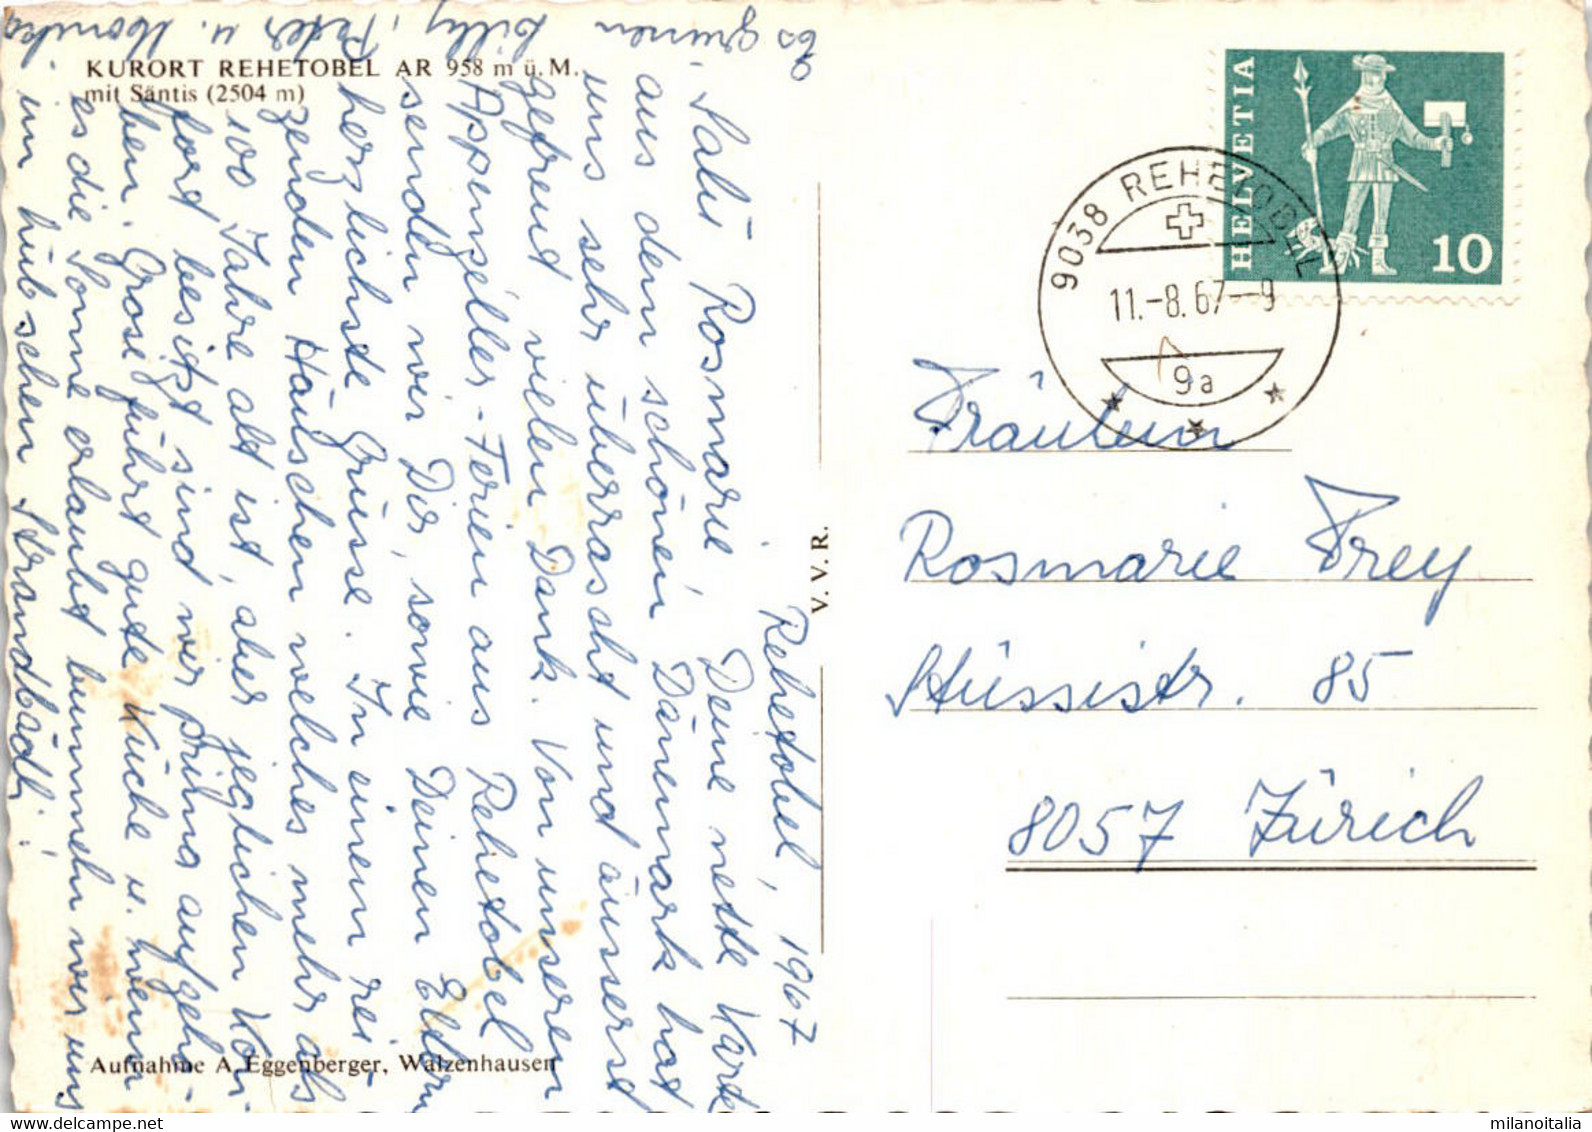 KURORT REHETOBEL AR 958 m ü. M.
mit Säntis (2504 m)
Rehetobel, 1967
Salü Rosmarie, Deine nette Karte
aus dem schönen Dänemark hat
uns sehr überrascht und äusserst
gefreut vielen Dank. Von unseren
Appenzeller-Ferien aus Rehetobel
senden wir Dir, sowie Deinen Eltern
herzlichste Grüsse. In einem rei-
zenden Häuschen welches mehr als
100 Jahre alt ist, aber jeglichen Kom-
fort besitzt sind wir prima aufgeho-
ben. Grosi führt gute Küche u. wenn
es die Sonne erlaubt bummeln wir uns
im hübschen Strandbädli!
Es grüssen Lilly, Peter u. Monika
Aufnahme A. Eggenberger, Walzenhausen
V. V. R.
HELVETIA
10
9038 REHETOBEL
11.-8.67--9
9a
Fräulein
Rosmarie Frey
Stüssistr. 85
8057 Zürich
milanoitalia